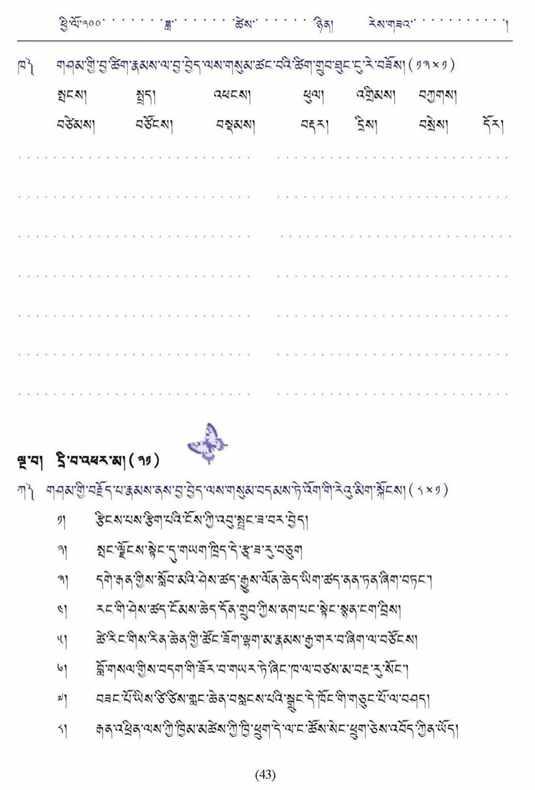 ཕྱི་ལོ་༢༠༠ ཟླ་ ཚེས་ ཉིན། རེས་གཟའ་ །
ཁ༽ གཤམ་གྱི་བྱ་ཚིག་རྣམས་ལ་བྱ་བྱེད་ལས་གསུམ་ཚང་བའི་ཚིག་གྲུབ་ཐུང་ངུ་རེ་བཟོས། (༡༣×༡)
སྤངས། སྤྲད། འཕངས། ཕུལ། འགྲིམས། བཀྲགས།
བཙེམས། བཙོངས། བསྡམས། བརྡར། དྲིས། བསྲེས། དོར།
ལྔ་བ། དྲི་བ་འཕར་མ། (༢༡)
ཀ༽ གཤམ་གྱི་བརྗོད་པ་རྣམས་ནས་བྱ་བྱེད་ལས་གསུམ་བདམས་ཏེ་འོག་གི་རེའུ་མིག་སྐོངས། (༨×༡)
༡། རྩིངས་པས་རྩིག་པའི་ངོས་ཀྱི་འབུ་སྦྲང་ཟ་བར་བྱེད།
༢། སྤང་ལྗོངས་སྟེང་དུ་གཡག་ཁྲིད་དེ་རྩྭ་ཟ་རུ་བཅུག
༣། དགེ་རྒན་གྱིས་སློབ་མའི་ཤེས་ཚད་རྒྱུས་ལོན་ཆེད་ཡིག་ཚད་ནན་ཏན་ཞིག་བཏང་།
༤། རང་གི་ཤེས་ཚད་ངོམས་ཆེད་དོན་གྲུབ་ཀྱིས་ནག་པང་སྟེང་སྙན་ངག་བྲིས།
༥། ཚེ་རིང་གིས་རིན་ཆེན་གྱི་ཚོང་ཟོག་ལྷག་མ་རྣམས་རྒྱ་གར་བ་ཞིག་ལ་བཙོངས།
༦། བློ་གསལ་གྱིས་བདག་གི་ཟོར་བ་གཡར་ཏེ་ཞིང་ཁ་ལ་བཙས་མ་བརྔ་རུ་སོང་།
༧། བཟང་པོ་ཡིས་ཙི་ཙིས་གླང་ཆེན་བསླངས་པའི་སྒྲུང་དེ་ཁོང་གི་གཅུང་པོ་ལ་བཤད།
༨། རྒན་འཕྲིན་ལས་ཀྱི་ཁྱིམ་མཚེས་ཀྱི་ཁྱི་ཕྲུག་དེ་ལ་ང་ཚོས་སེང་ཕྲུག་ཅེས་འབོད་ཀྱིན་ཡོད།
(43)